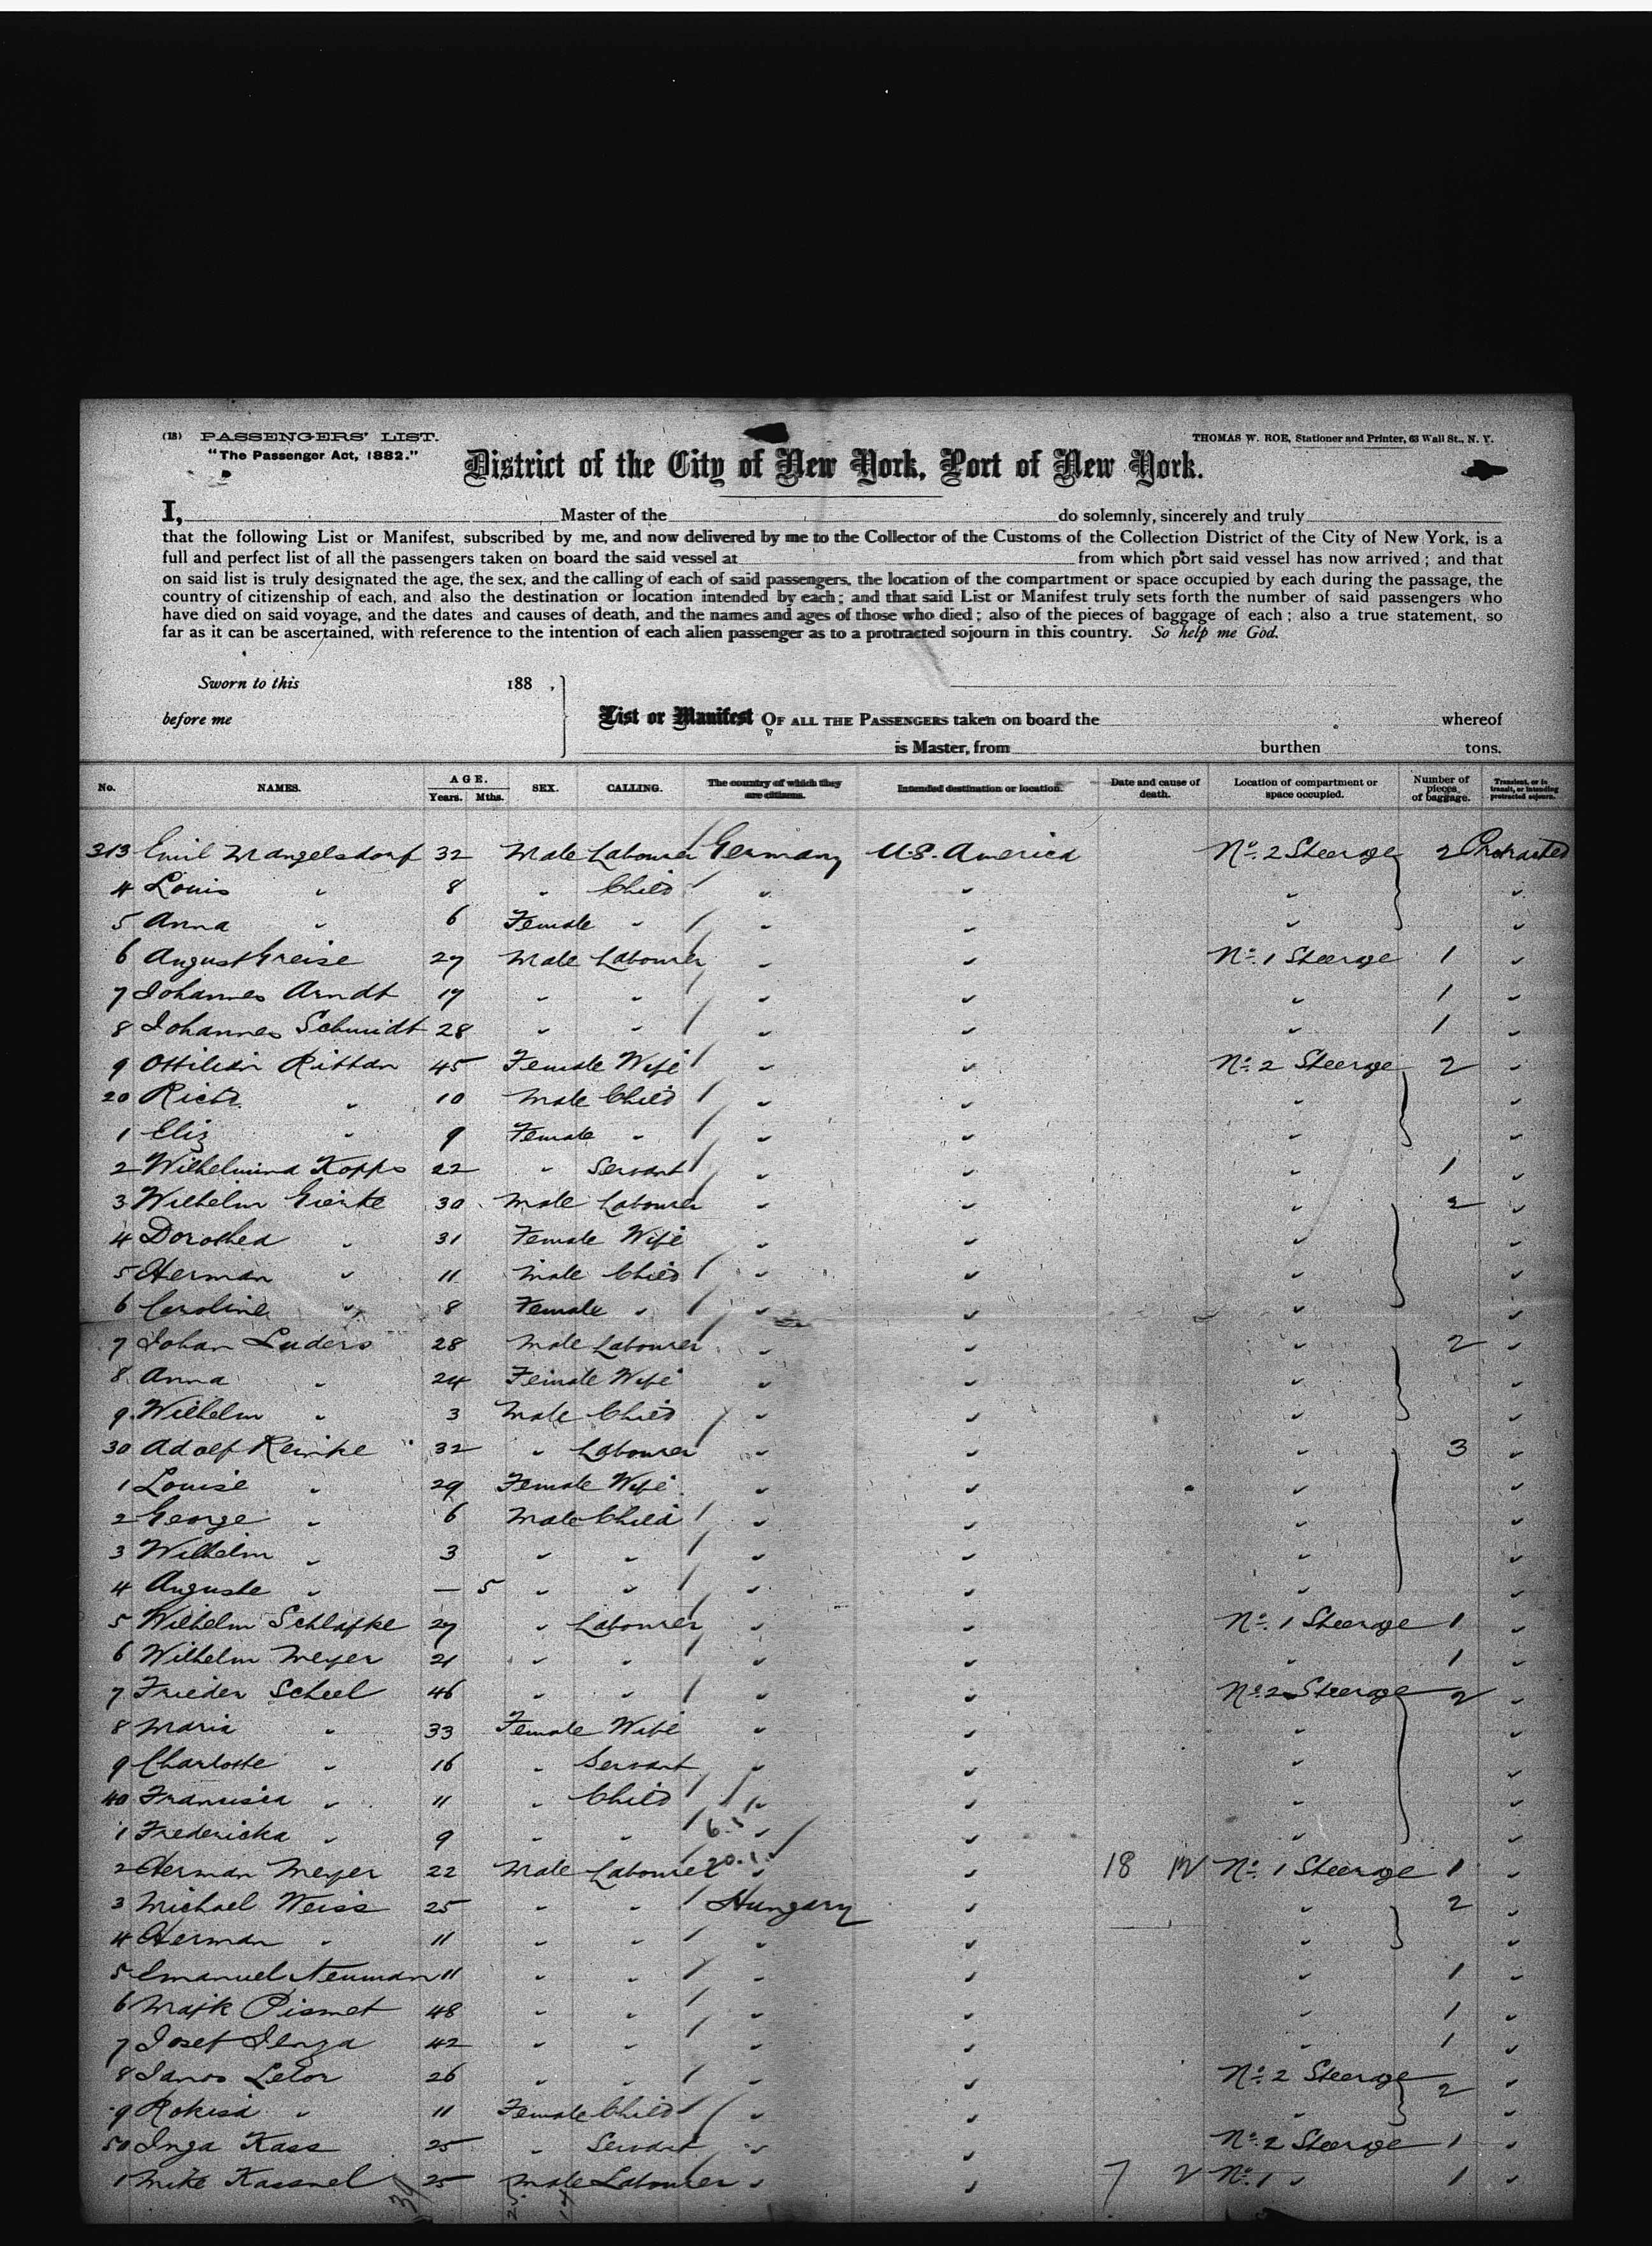 (18) PASSENGERS' LIST.
"The Passenger Act, 1882."
THOMAS W. ROE, Stationer and Printer, 63 Wall St., N. Y.
District of the City of New York, Port of New York.
I, Master of the do solemnly, sincerely and truly
that the following List or Manifest, subscribed by me, and now delivered by me to the Collector of the Customs of the Collection District of the City of New York, is a
full and perfect list of all the passengers taken on board the said vessel at from which port said vessel has now arrived; and that
on said list is truly designated the age, the sex, and the calling of each of said passengers, the location of the compartment or space occupied by each during the passage, the
country of citizenship of each, and also the destination or location intended by each; and that said List or Manifest truly sets forth the number of said passengers who
have died on said voyage, and the dates and causes of death, and the names and ages of those who died; also of the pieces of baggage of each; also a true statement, so
far as it can be ascertained, with reference to the intention of each alien passenger as to a protracted sojourn in this country. So help me God.
Sworn to this 188 ,
before me
List or Manifest OF ALL THE PASSENGERS taken on board the whereof
is Master, from burthen tons.
No. NAMES. AGE. Years. Mths. SEX. CALLING. The country of which they are citizens. Intended destination or location. Date and cause of death. Location of compartment or space occupied. Number of pieces of baggage. Transient, or in transit, or intending protracted sojourn.
313 Emil Mangelsdorf 32 Male Labourer Germany U.S. America No. 2 Steerage 2 Protracted
4 Louis " 8 " Child " " " "
5 Anna " 6 Female " " " " "
6 August Greise 27 Male Labourer " " No. 1 Steerage 1 "
7 Johannes Arndt 19 " " " " " 1 "
8 Johannes Schmidt 28 " " " " " 1 "
9 Ottilien Rittan 45 Female Wife " " No. 2 Steerage 2 "
20 Richd " 10 Male Child " " " "
1 Eliz " 9 Female " " " " "
2 Wilhelmina Kopps 22 " Servant " " " 1 "
3 Wilhelm Gierke 30 Male Labourer " " " 2 "
4 Dorothea " 31 Female Wife " " " "
5 Herman " 11 Male Child " " " "
6 Caroline " 8 Female " " " " "
7 Johan Luders 28 Male Labourer " " " 2 "
8 Anna " 24 Female Wife " " " "
9 Wilhelm " 3 Male Child " " " "
30 Adolf Reinke 32 " Labourer " " " 3 "
1 Louise " 29 Female Wife " " " "
2 George " 6 Male Child " " " "
3 Wilhelm " 3 " " " " " "
4 Auguste " — 5 " " " " " "
5 Wilhelm Schlafke 27 " Labourer " " No. 1 Steerage 1 "
6 Wilhelm Meyer 21 " " " " " 1 "
7 Frieder Scheel 46 " " " " No. 2 Steerage 2 "
8 Maria " 33 Female Wife " " " "
9 Charlotte " 16 " Servant " " " "
40 Francisca " 11 " Child " " " "
1 Fredericka " 9 " " " " " "
2 Herman Meyer 22 Male Labourer " " 18 No. 1 Steerage 1 "
3 Michael Weiss 25 " " Hungary " " 2 "
4 Herman " 11 " " " " " "
5 Emanuel Neuman 11 " " " " " 1 "
6 Majk Pismet 48 " " " " " 1 "
7 Josef 42 " " " " " 1 "
8 Janos Lelor 26 " " " " No. 2 Steerage 2 "
9 Rokisa " 11 Female Child " " " "
50 Inga Kass 25 " Servant " " No. 2 Steerage 1 "
1 Mike Kassnel 25 Male Labourer " " 7 No. 1 " 1 "